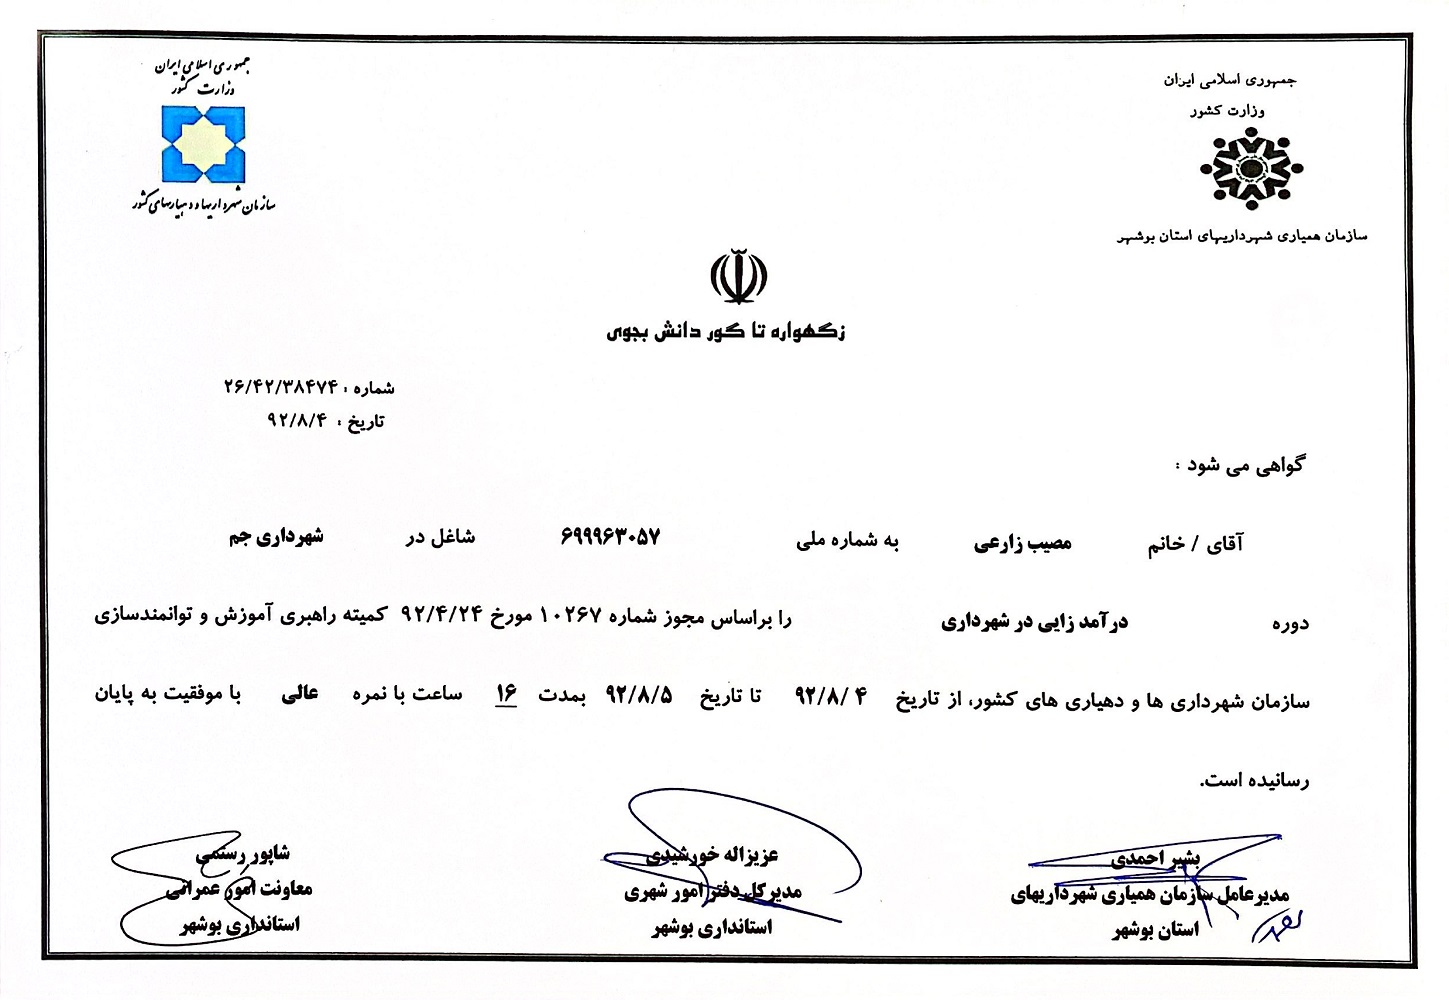 جمهوری اسلامی ایران
وزارت کشور
سازمان همیاری شهرداریهای استان بوشهر
جمهوری اسلامی ایران
وزارت کشور
سازمان شهرداریها و دهیاریهای کشور
زگهواره تا گور دانش بجوی
شماره : ۲۶/۴۲/۳۸۴۷۴
تاریخ : ۹۲/۸/۴
گواهی می شود :
آقای / خانم مصیب زارعی به شماره ملی ۶۹۹۹۶۳۰۵۷ شاغل در شهرداری جم
دوره درآمد زایی در شهرداری را براساس مجوز شماره ۱۰۲۶۷ مورخ ۹۲/۴/۲۴ کمیته راهبری آموزش و توانمندسازی
سازمان شهرداری ها و دهیاری های کشور، از تاریخ ۹۲/۸/۴ تا تاریخ ۹۲/۸/۵ بمدت ۱۶ ساعت با نمره عالی با موفقیت به پایان
رسانیده است.
بشیر احمدی
مدیرعامل سازمان همیاری شهرداریهای
استان بوشهر
عزیزاله خورشیدی
مدیرکل دفتر امور شهری
استانداری بوشهر
شاپور رستمی
معاونت امور عمرانی
استانداری بوشهر